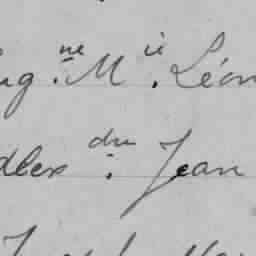 ug.ne M.ie Léon
dlex.dre Jean